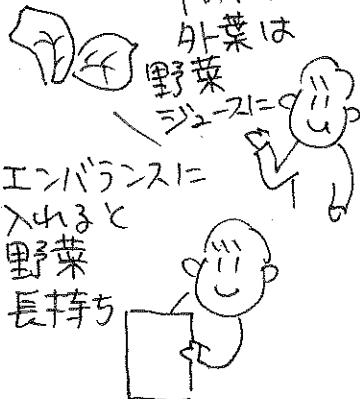 外葉は
野菜
ジュースに
エンバランスに
入れると
野菜
長持ち